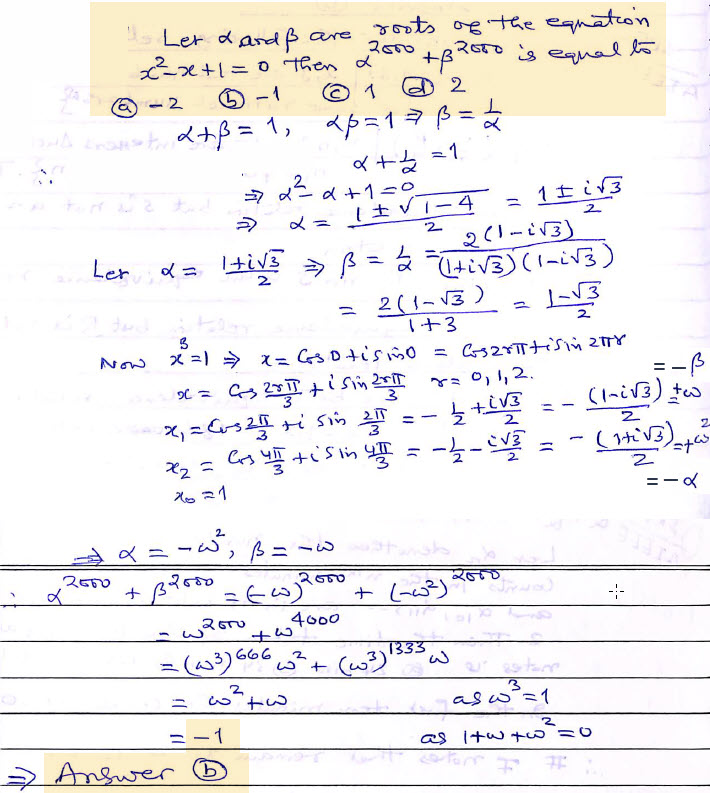 Let α and β are roots of the equation
x²-x+1=0 then α²⁰⁰⁰+β²⁰⁰⁰ is equal to
(a) -2 (b) -1 (c) 1 (d) 2
α+β=1, αβ=1 ⇒ β=1/α
∴ α+1/α=1
⇒ α²-α+1=0
⇒ α = (1±√(1-4))/2 = (1±i√3)/2
Let α = (1+i√3)/2 ⇒ β = 1/α = 2(1-i√3)/((1+i√3)(1-i√3))
= 2(1-√3)/(1+3) = (1-√3)/2
Now x³=1 ⇒ x = Cos0+isin0 = Cos2rπ+isin2πr
x = Cos 2rπ/3 + i Sin 2rπ/3 r=0,1,2.
x₁ = Cos 2π/3 + i Sin 2π/3 = -1/2 + i√3/2 = -(1-i√3)/2 = +ω = -β
x₂ = Cos 4π/3 + i Sin 4π/3 = -1/2 - i√3/2 = -(1+i√3)/2 = +ω² = -α
x₀ = 1
⇒ α = -ω², β = -ω
∴ α²⁰⁰⁰ + β²⁰⁰⁰ = (-ω)²⁰⁰⁰ + (-ω²)²⁰⁰⁰
= ω²⁰⁰⁰ + ω⁴⁰⁰⁰
= (ω³)⁶⁶⁶ ω² + (ω³)¹³³³ ω
= ω²+ω as ω³=1
= -1 as 1+ω+ω²=0
⇒ Answer (b)